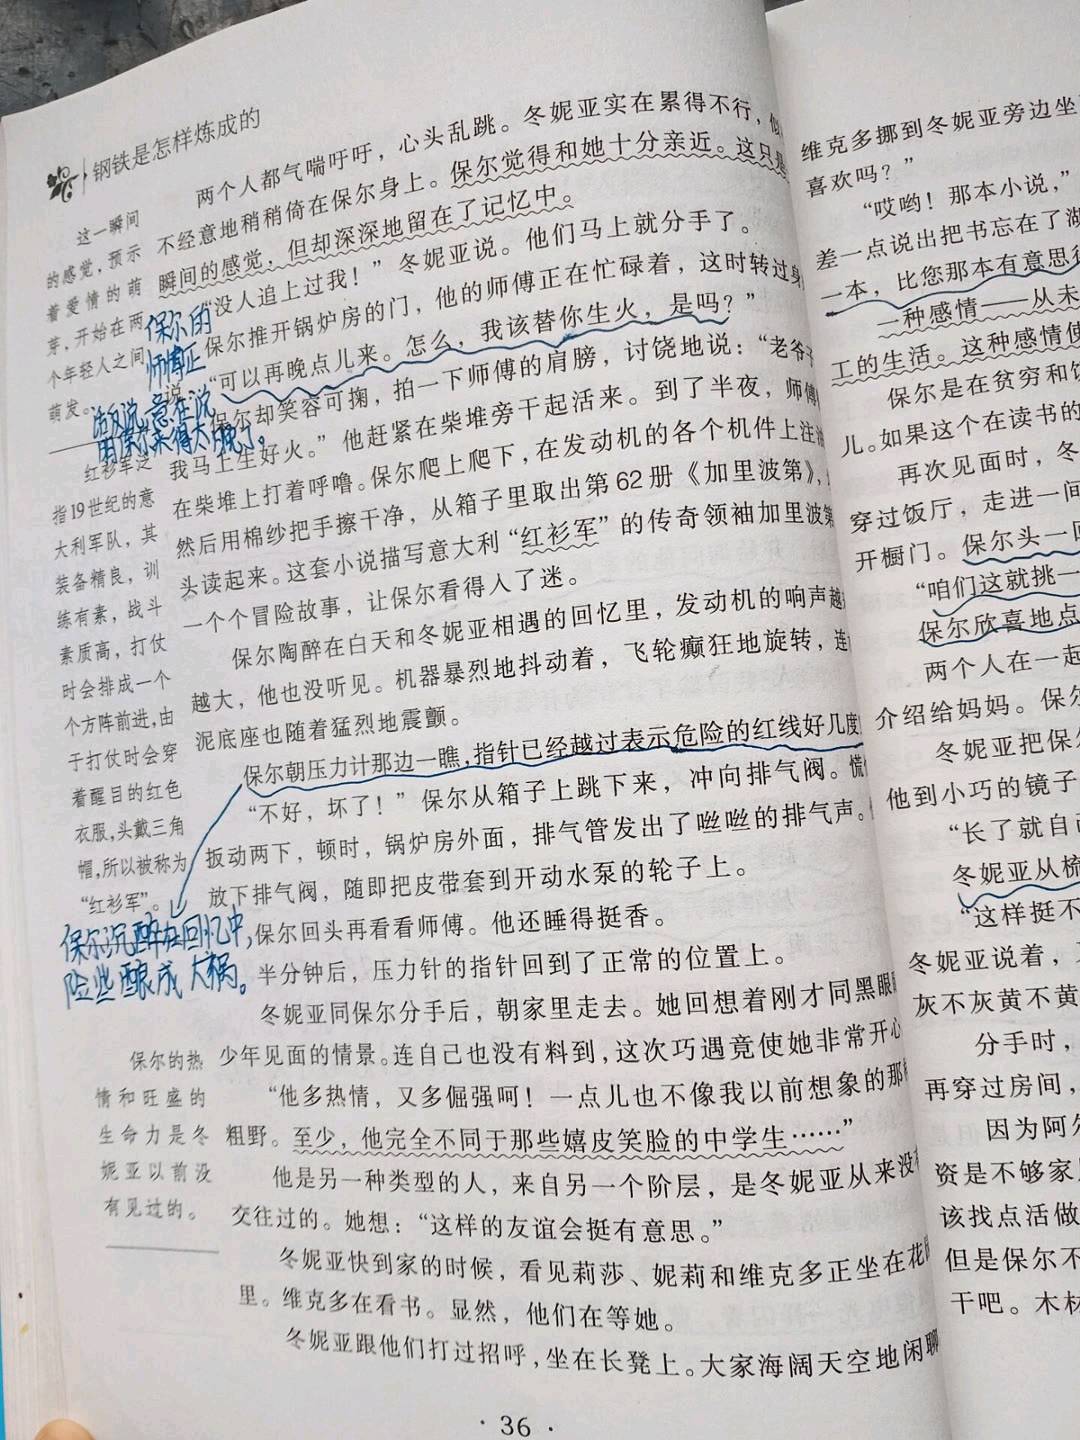 钢铁是怎样炼成的
两个人都气喘吁吁，心头乱跳。冬妮亚实在累得不行，似
不经意地稍稍倚在保尔身上。保尔觉得和她十分亲近。这只是
瞬间的感觉，但却深深地留在了记忆中。
“没人追上过我！”冬妮亚说。他们马上就分手了。
保尔推开锅炉房的门，他的师傅正在忙碌着，这时转过身
说：“可以再晚点儿来。怎么，我该替你生火，是吗？”
保尔却笑容可掬，拍一下师傅的肩膀，讨饶地说：“老爷子
我马上生好火。”他赶紧在柴堆旁干起活来。到了半夜，师傅
在柴堆上打着呼噜。保尔爬上爬下，在发动机的各个机件上注油
然后用棉纱把手擦干净，从箱子里取出第62册《加里波第》，
头读起来。这套小说描写意大利“红衫军”的传奇领袖加里波第
一个个冒险故事，让保尔看得入了迷。
保尔陶醉在白天和冬妮亚相遇的回忆里，发动机的响声越
越大，他也没听见。机器暴烈地抖动着，飞轮癫狂地旋转，连
泥底座也随着猛烈地震颤。
保尔朝压力计那边一瞧，指针已经越过表示危险的红线好几度
“不好，坏了！”保尔从箱子上跳下来，冲向排气阀。慌
扳动两下，顿时，锅炉房外面，排气管发出了咝咝的排气声。
放下排气阀，随即把皮带套到开动水泵的轮子上。
保尔回头再看看师傅。他还睡得挺香。
半分钟后，压力针的指针回到了正常的位置上。
冬妮亚同保尔分手后，朝家里走去。她回想着刚才同黑眼
少年见面的情景。连自己也没有料到，这次巧遇竟使她非常开心
“他多热情，又多倔强呵！一点儿也不像我以前想象的那
粗野。至少，他完全不同于那些嬉皮笑脸的中学生……”
他是另一种类型的人，来自另一个阶层，是冬妮亚从来没
交往过的。她想：“这样的友谊会挺有意思。”
冬妮亚快到家的时候，看见莉莎、妮莉和维克多正坐在花
里。维克多在看书。显然，他们在等她。
冬妮亚跟他们打过招呼，坐在长凳上。大家海阔天空地闲聊
这一瞬间
的感觉，预示
着爱情的萌
芽，开始在两
个年轻人之间
萌发。
保尔的
师傅正
话反说，意在说
明保尔来得太晚了。
红衫军泛
指19世纪的意
大利军队，其
装备精良，训
练有素，战斗
素质高，打仗
时会排成一个
个方阵前进，由
于打仗时会穿
着醒目的红色
衣服，头戴三角
帽，所以被称为
“红衫军”。
保尔沉醉在回忆中，
险些酿成大祸。
保尔的热
情和旺盛的
生命力是冬
妮亚以前没
有见过的。
· 36 ·
维克多挪到冬妮亚旁边坐
喜欢吗？”
“哎哟！那本小说，”
差一点说出把书忘在了湖
一本，比您那本有意思得
一种感情——从未
工的生活。这种感情使
保尔是在贫穷和饥
儿。如果这个在读书的
再次见面时，冬
穿过饭厅，走进一间
开橱门。保尔头一回
“咱们这就挑一
保尔欣喜地点
两个人在一起
介绍给妈妈。保尔
冬妮亚把保
他到小巧的镜子
“长了就自己
冬妮亚从梳
“这样挺不
冬妮亚说着，
灰不灰黄不黄
分手时，
再穿过房间，
因为阿尔
资是不够家
该找点活做
但是保尔不
干吧。木材